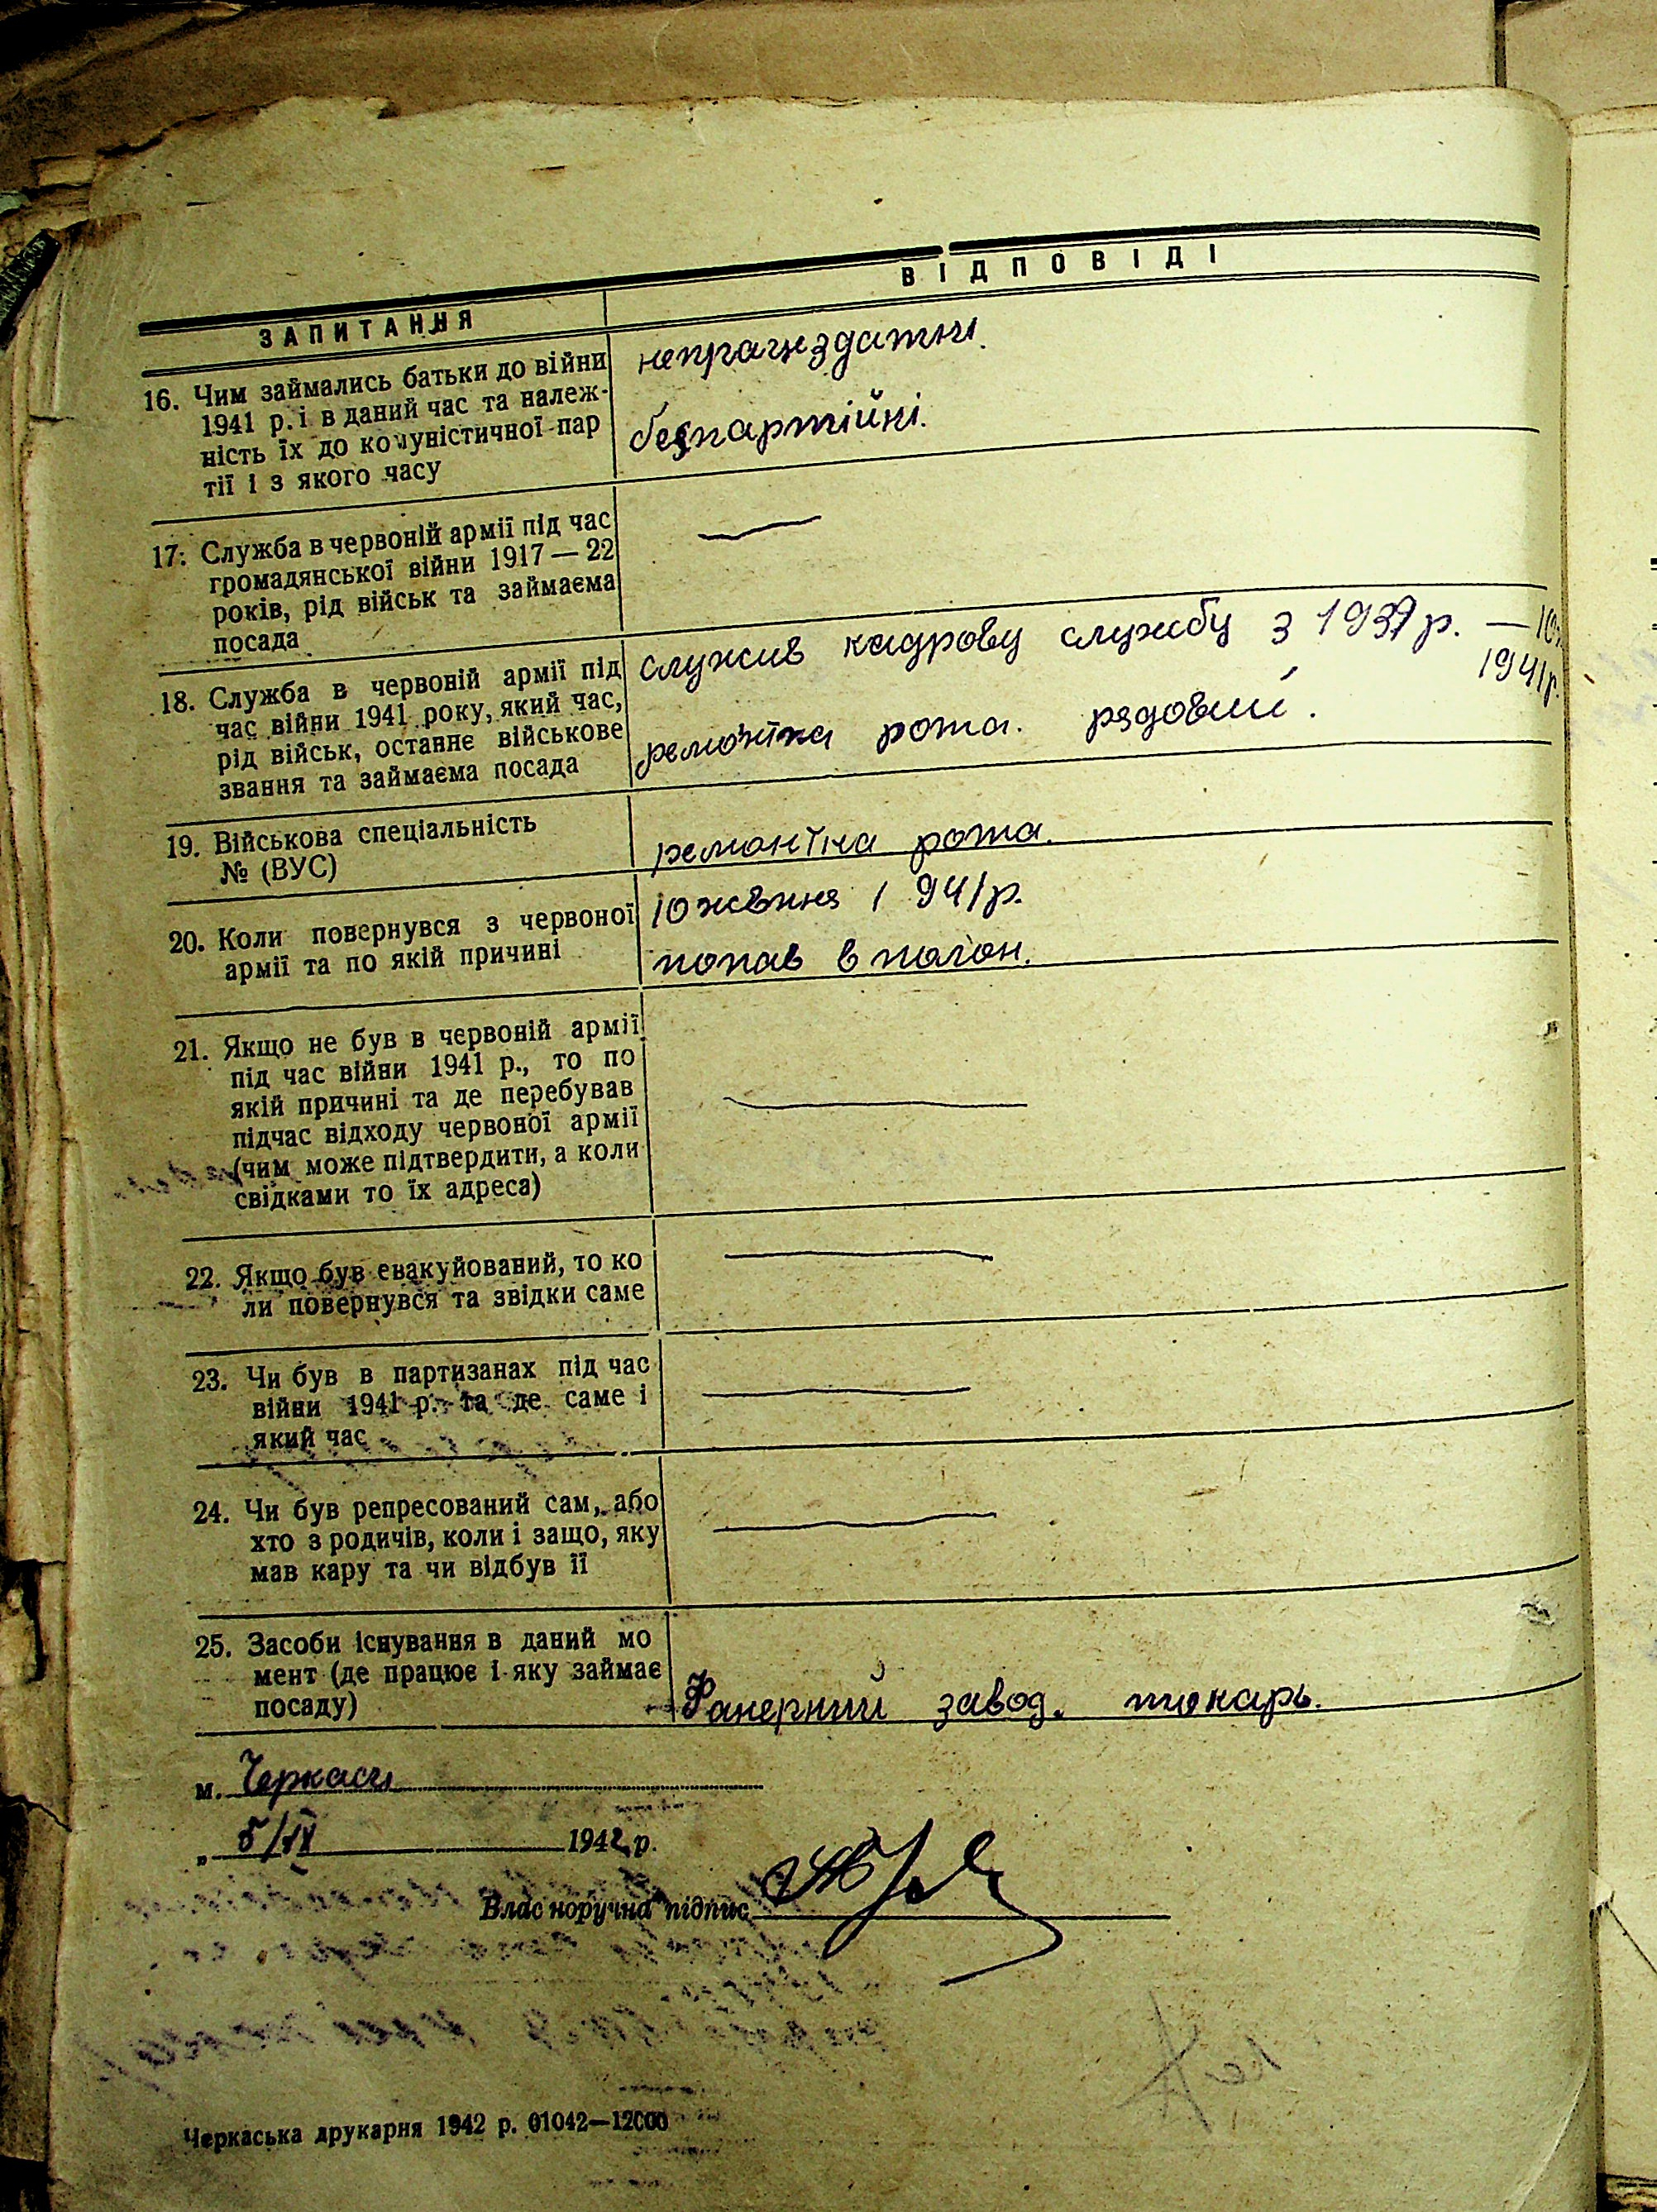 ЗАПИТАННЯ
ВІДПОВІДІ
16. Чим займались батьки до війни
1941 р. і в даний час та належ-
ність їх до комуністичної пар
тії і з якого часу
непрацездатні.
безпартійні.
17. Служба в червоній армії під час
громадянської війни 1917 — 22
років, рід військ та займаєма
посада
—
18. Служба в червоній армії під
час війни 1941 року, який час,
рід військ, останнє військове
звання та займаєма посада
служив кадрову службу з 1937 р. —
1941 р.
ремонтна рота. рядовий.
19. Військова спеціальність
№ (ВУС)
ремонтна рота.
20. Коли повернувся з червоної
армії та по якій причині
10 жовтня 1941 р.
попав в полон.
21. Якщо не був в червоній армії
під час війни 1941 р., то по
якій причині та де перебував
підчас відходу червоної армії
(чим може підтвердити, а коли
свідками то їх адреса)
—
22. Якщо був евакуйований, то ко
ли повернувся та звідки саме
—
23. Чи був в партизанах під час
війни 1941 р. та де саме і
який час
—
24. Чи був репресований сам, або
хто з родичів, коли і защо, яку
мав кару та чи відбув її
—
25. Засоби існування в даний мо
мент (де працює і яку займає
посаду)
Фанерний завод. токарь.
м. Черкаси
„ 5/IV 1942 р.
Влас норучна підпис
Черкаська друкарня 1942 р. 01042—12000